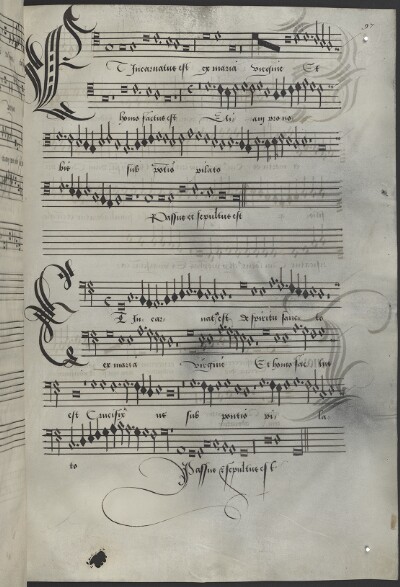 97
Et Incarnatus est ex maria virgine Et
homo factus est Eti am pro no
bis sub pontio pilato
Passus et sepultus est
Et In car nat' est de spiritu sanc to
ex maria virgine Et homo fac tus
est Crucifix us sub pontio pi la
to Passus & sepultus est